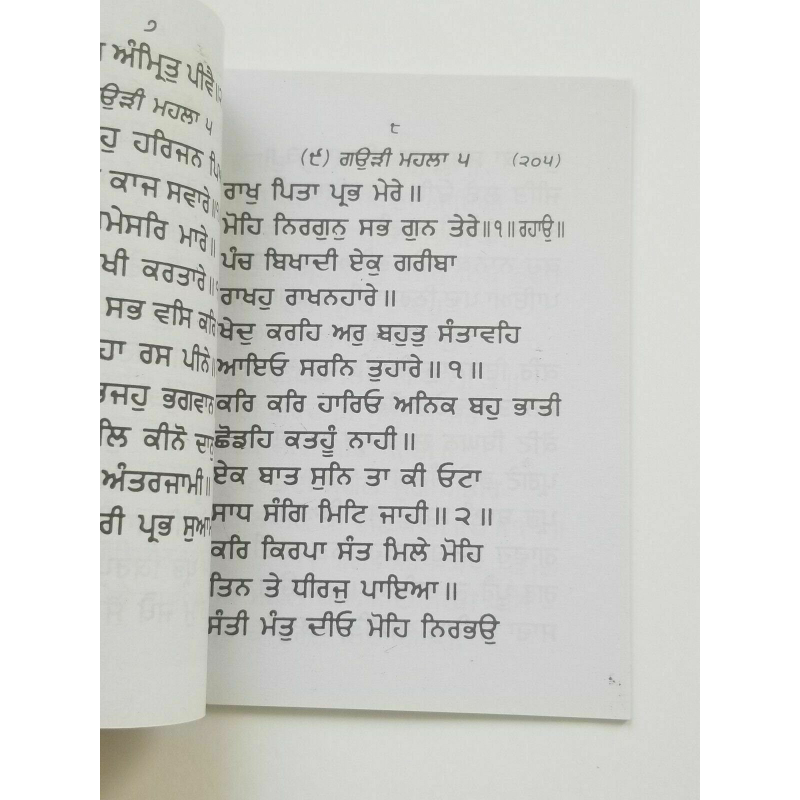 ੭
ਅੰਮ੍ਰਿਤੁ ਪੀਵੈ
ਮਹਲਾ ੫
ਹਰਿਜਨ
ਕਾਜ ਸਵਾਰੇ
ਮਾਰੇ॥
ਕਰਤਾਰੇ॥
ਸਭ ਵਸਿ ਕਰਿ
ਰਸ ਪੀਨੇ॥
ਭਗਵਾਨ
ਕੀਨੋ
ਅੰਤਰਜਾਮੀ॥
ਪ੍ਰਭ ਸੁਆ
੮
(੯) ਗਉੜੀ ਮਹਲਾ ੫ (੨੦੫)
ਰਾਖੁ ਪਿਤਾ ਪ੍ਰਭ ਮੇਰੇ॥
ਮੋਹਿ ਨਿਰਗੁਨੁ ਸਭ ਗੁਨ ਤੇਰੇ॥੧॥ਰਹਾਉ॥
ਪੰਚ ਬਿਖਾਦੀ ਏਕੁ ਗਰੀਬਾ
ਰਾਖਹੁ ਰਾਖਨਹਾਰੇ॥
ਖੇਦੁ ਕਰਹਿ ਅਰੁ ਬਹੁਤੁ ਸੰਤਾਵਹਿ
ਆਇਓ ਸਰਨਿ ਤੁਹਾਰੇ॥੧॥
ਕਰਿ ਕਰਿ ਹਾਰਿਓ ਅਨਿਕ ਬਹੁ ਭਾਤੀ
ਛੋਡਹਿ ਕਤਹੂੰ ਨਾਹੀ॥
ਏਕ ਬਾਤ ਸੁਨਿ ਤਾ ਕੀ ਓਟਾ
ਸਾਧ ਸੰਗਿ ਮਿਟਿ ਜਾਹੀ॥੨॥
ਕਰਿ ਕਿਰਪਾ ਸੰਤ ਮਿਲੇ ਮੋਹਿ
ਤਿਨ ਤੇ ਧੀਰਜੁ ਪਾਇਆ॥
ਸੰਤੀ ਮੰਤੁ ਦੀਓ ਮੋਹਿ ਨਿਰਭਉ